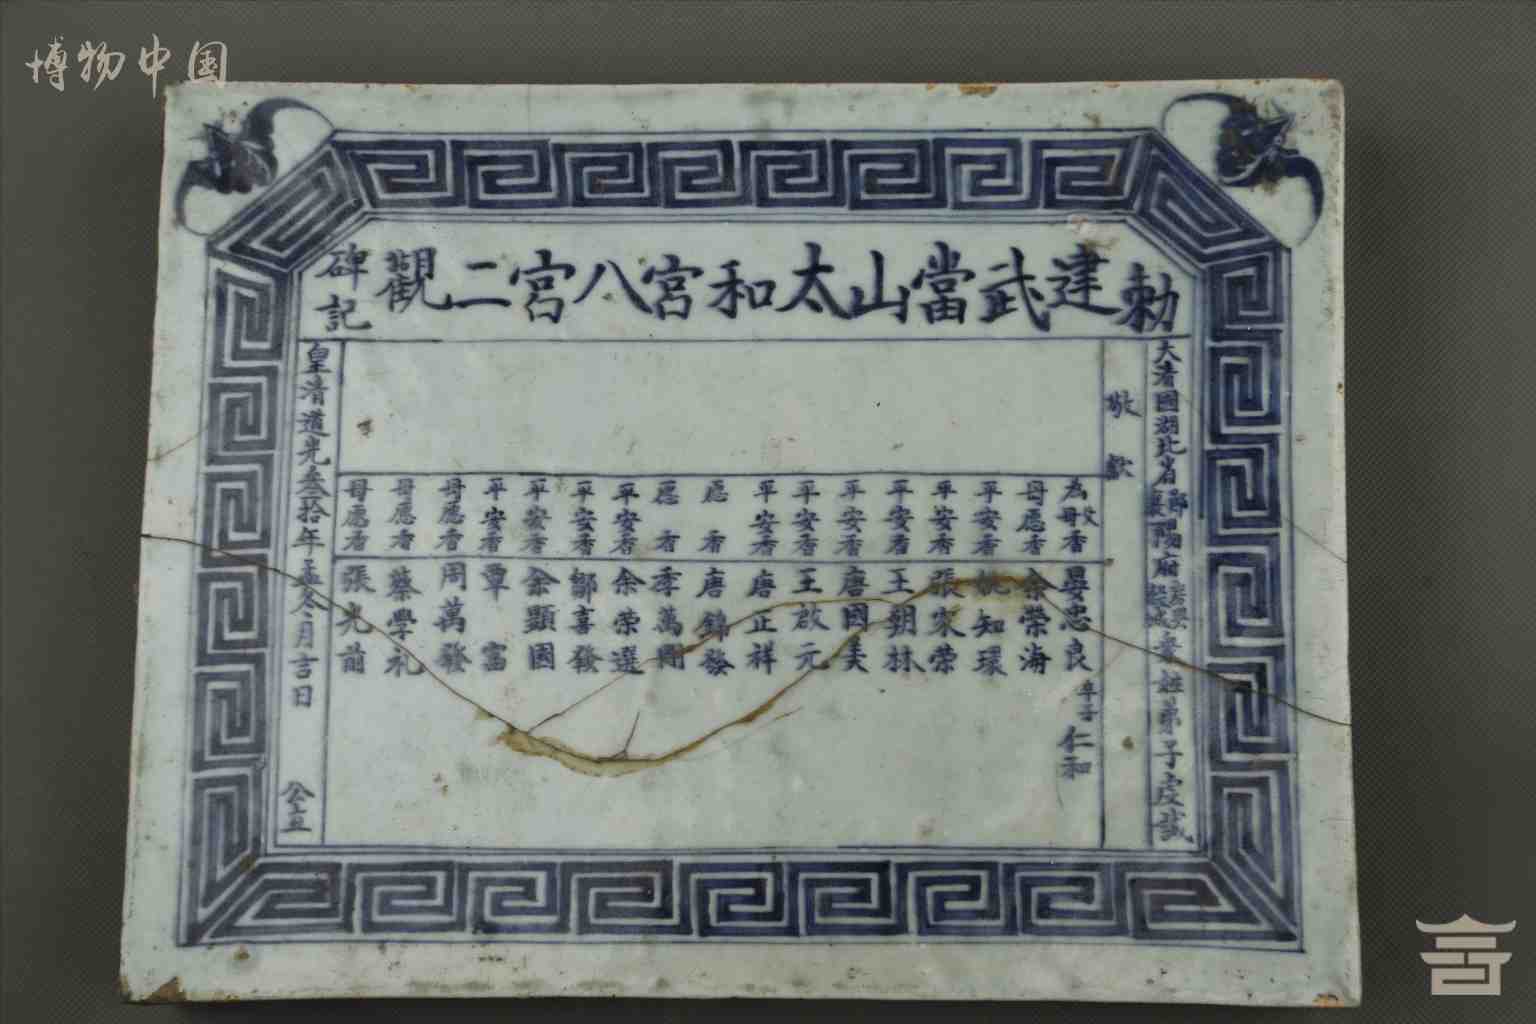 博物中国
勅建武當山太和宮八宮二觀碑記
大清國湖北省鄖陽襄陽府眾姓弟子虔誠
敬獻
為父母香 晏忠良 率子仁和
母愿香 余榮海
平安香 姚知環
平安香 張家榮
平安香 王朝林
平安香 唐國美
平安香 王啟元
平安香 唐正祥
愿香 唐錦發
愿香 季萬開
平安香 余榮選
平安香 鄒喜發
平安香 余顯國
平安香 覃富
母愿香 周萬發
母愿香 蔡學礼
母愿香 張光前
皇清道光叁拾年孟冬月吉日 仝立